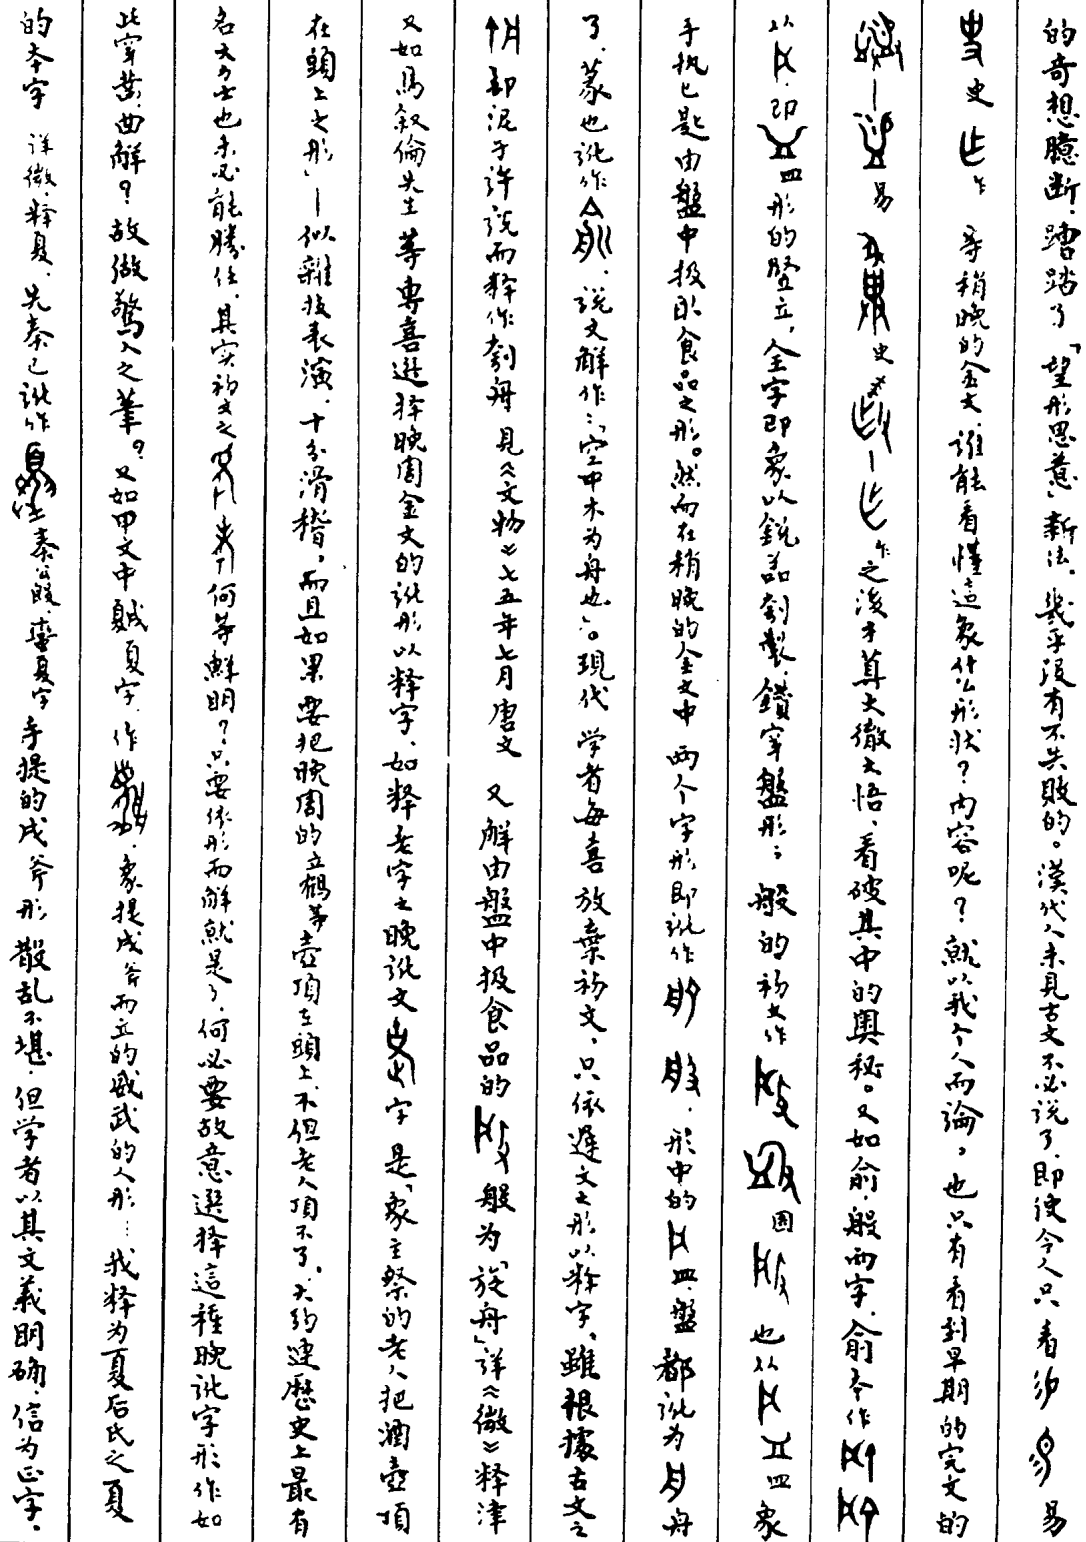 的奇想臆断，蹧踏了「望形思意」新法，幾乎没有不失敗的。漢代人未見古文不必説了，即使今人只看 易
史 乍 等稍晚的金文，誰能看懂這象什么形状？内容呢？就以我个人而論，也只有看到早期的完文的
易 史 乍之後才算大徹大悟，看破其中的奥秘。又如俞、般两字，俞本作
以 即 皿形的竪立，全字即象以鋭器刳製、鑽穿盤形；般的初文作 也从 皿象
手执匕匙由盤中扱取食品之形。然而在稍晚的金文中两个字形即訛作 ，形中的 皿、盤都訛为 舟
了，篆也訛作 ，説文解作：「空中木为舟也」。現代学者每喜放棄初文，只依遅文之形以释字，雖根據古文之
即泥于許説而释作刳舟 見《文物》七五年七月唐文 又解由盤中扱食品的 般为「旋舟」詳《微》释津
又如馬叙倫先生等專喜選择晚周金文的訛形以释字，如释老字之晚訛文 字是「象主祭的老人把酒壺頂
在頭上之形」—似雜技表演，十分滑稽，而且如果要把晚周的立鶴等壺頂在頭上，不但老人頂不了，大約連歷史上最有
名大力士也未必能勝任，其实初文之 何等鮮明？只要依形而解就是了，何必要故意選择這種晚訛字形作如
此穿凿曲解？故做驚人之筆？又如甲文中 夏字，作 ，象提戌斧而立的威武的人形…我释为夏后氏之夏
的本字 詳微，释夏，先秦已訛作 秦公 夏字 手提的戌斧形散乱不堪，但学者以其文義明确，信为正字，